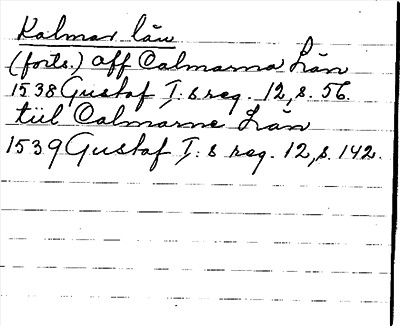 Kalmar län
(forts.) aff Calmarna Län
1538 Gustaf I:s reg. 12, s. 56.
tiil Calmarne Län
1539 Gustaf I:s reg. 12, s. 142.